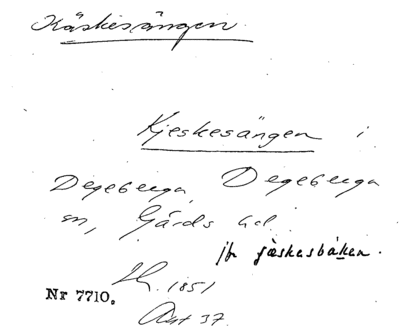 Käskesängen
Kjeskesängen i
Degeberga, Degeberga
sn, Gärds hd.
jfr jæskesbáken.
1851
Nr 7710.
Akt 37